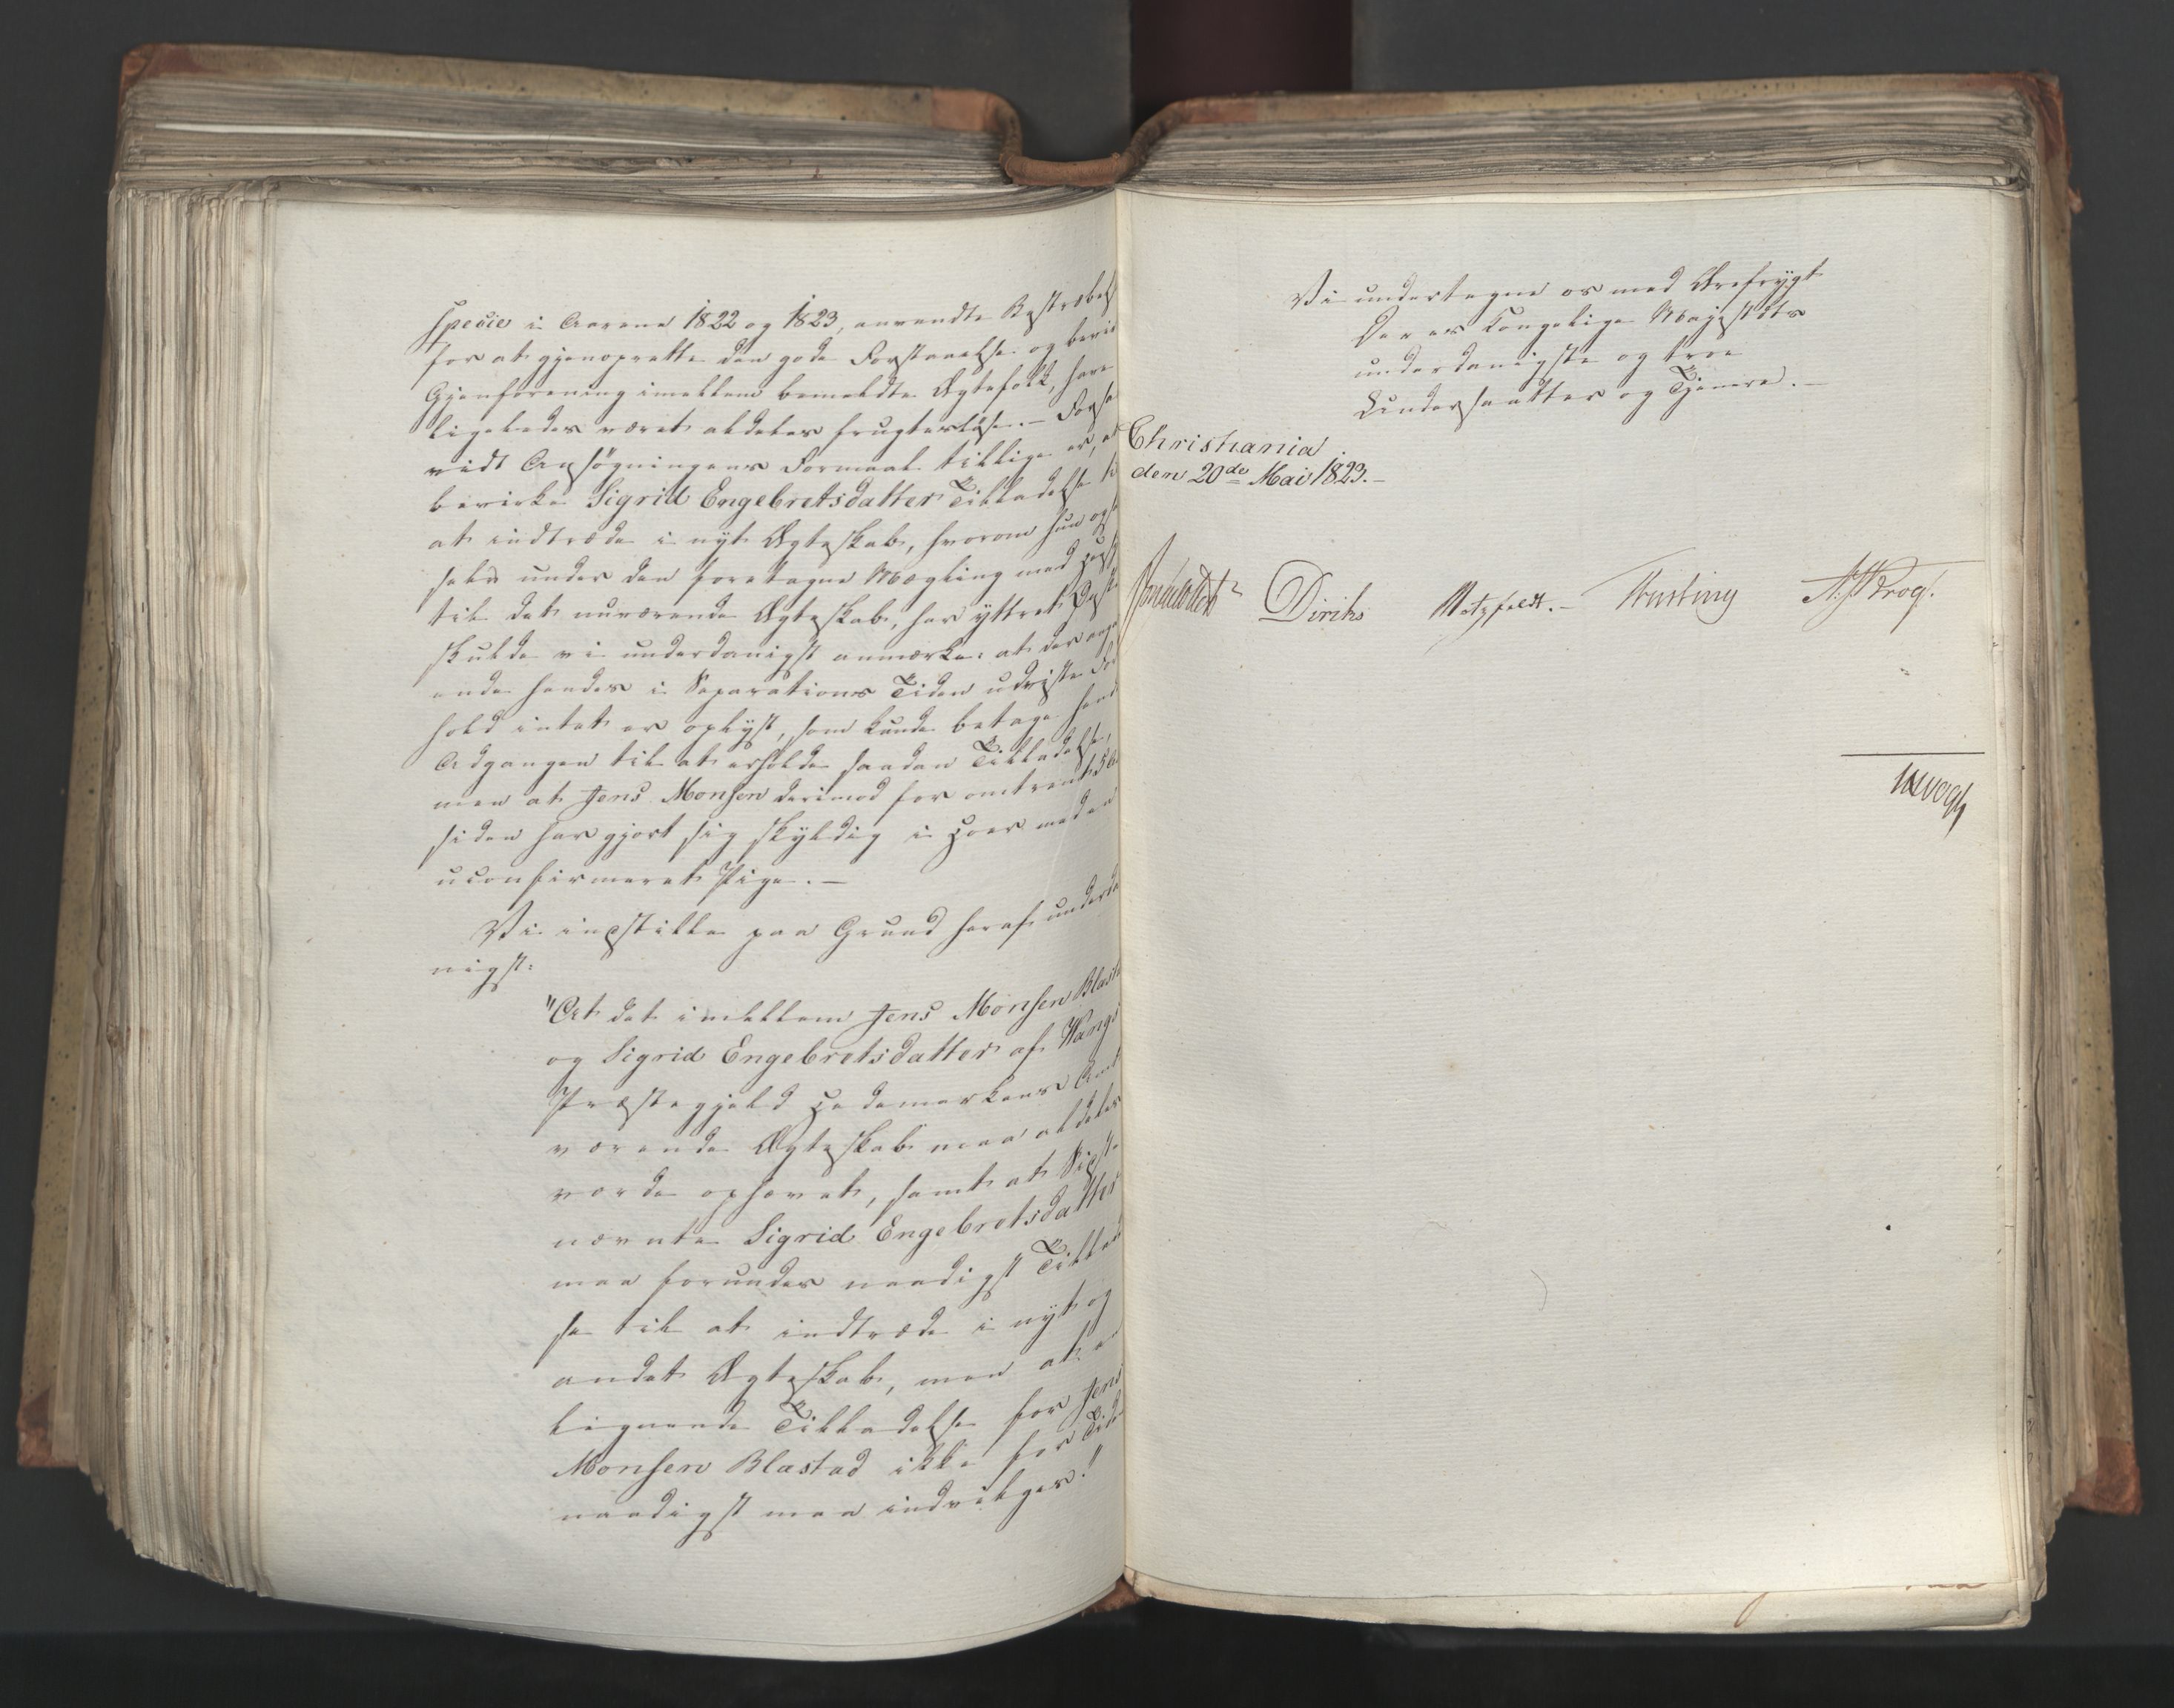 specie i Aarene 1822 og 1823, anvendte Bestræbel
for at gjenoprette den gode Forstaaelse og bevir
Gjenforening imellem bemeldte Ægtefolk, have
ligeledes været aldeles frugtesløse. — Forsaa
vidt Ansøgningens Formaal tillige er, at
bevirke Sigrid Engebretsdatter Tilladelse til
at indtræde i nyt Ægteskab, hvorom hun ogsaa
selv under den foretagne Mægling med
til det nuværende Ægteskab, har yttret Ønske
skulde vi underdanigst anmærke: at der ang
ende hendes i Separations Tiden udviste For
hold intet er oplyst, som kunde betage hende
Adgangen til at erholde saadan Tilladelse,
men at Jens Monsen derimod for omtrent
siden har gjort sig skyldig i Hoer med en
uconfirmeret Pige. —
Vi indstille paa Grund heraf underda
nigst:
"At det imellem Jens Monsen Blasta
og Sigrid Engebretsdatter af Wangs
Præstegjeld Hedemarkens Amt
værende Ægteskab maa aldeles
vorde ophævet, samt at Sidst-
nævnte Sigrid Engebretsdatter
maa forundes naadigst Tillad
se til at indtræde i nyt og
andet Ægteskab, men at en
lignende Tilladelse for Jens
Monsen Blastad ikke for Tiden
naadigst maa indvilges."
Vi undertegne os med Ærefrygt
Deres Kongelige Majestæts
underdanigste og troe
Undersaatter og Tjenere. —
Christiania
den 20de Mai 1823. —
Diriks
Motzfeldt. —
Krog.